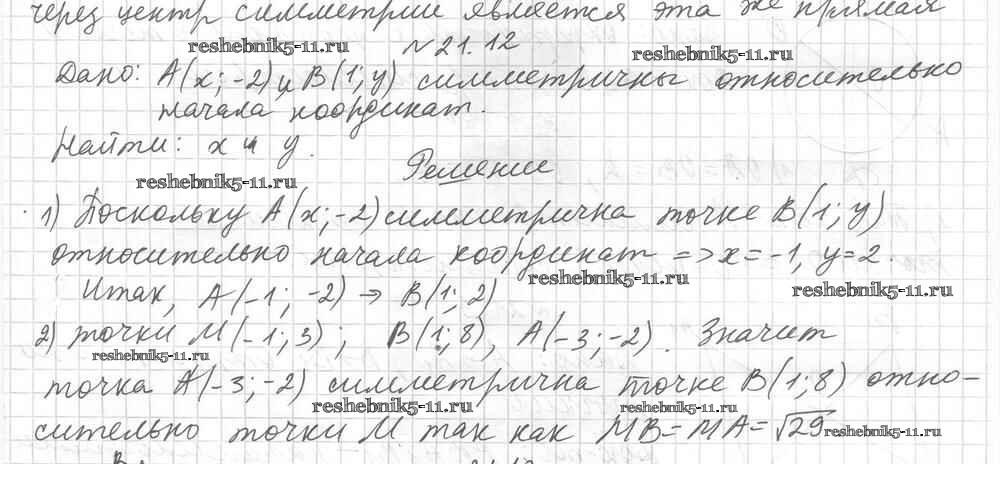 через центр симметрии является эта же прямая
reshebnik5-11.ru № 21.12 reshebnik5-11.ru
Дано: A(x; -2) и B(1; y) симметричны относительно
начала координат.
Найти: x и y.
reshebnik5-11.ru Решение
1) Поскольку A(x; -2) симметрична точке B(1; y)
относительно начала координат => x = -1, y = 2.
reshebnik5-11.ru
Итак, A(-1; -2) → B(1; 2) reshebnik5-11.ru
2) точки M(-1; 3); B(1; 8), A(-3; -2). Значит
reshebnik5-11.ru
точка A(-3; -2) симметрична точке B(1; 8) отно-
reshebnik5-11.ru reshebnik5-11.ru
сительно точки M. так как MB = MA = √29 reshebnik5-11.ru